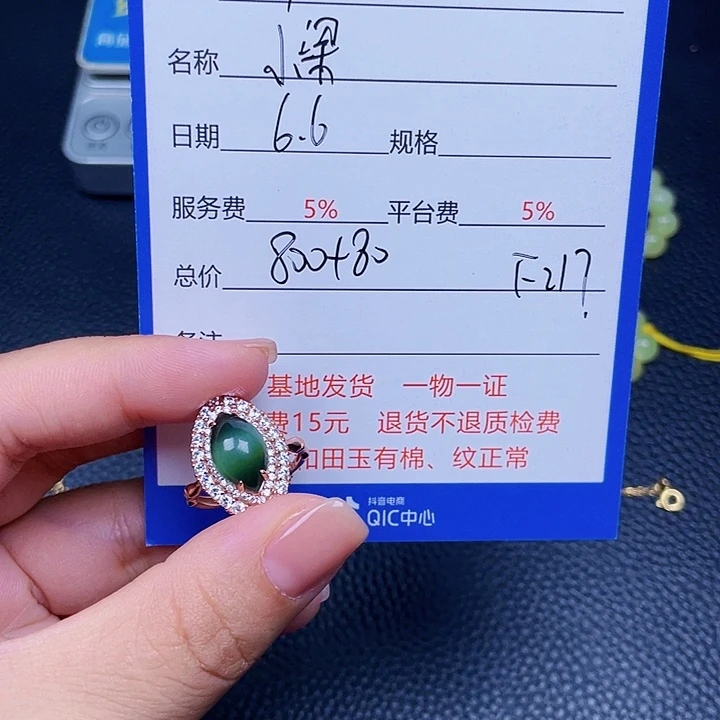 名称 小梁
日期 6.6 规格
服务费 5% 平台费 5%
总价 800+80 F217
备注
基地发货 一物一证
费15元 退货不退质检费
和田玉有棉、纹正常
抖音电商
QIC中心